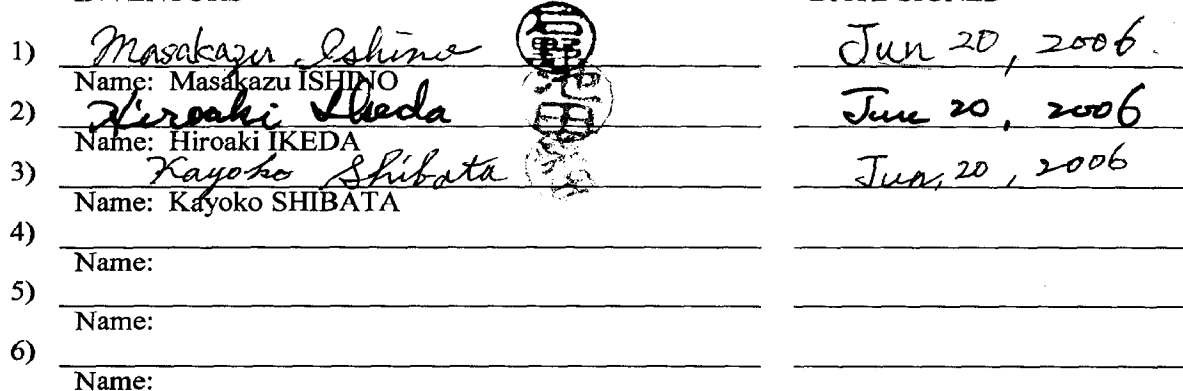 1) Masakazu Ishino 石野 Jun 20, 2006.
Name: Masakazu ISHINO
2) Hiroaki Ikeda 池田 June 20, 2006
Name: Hiroaki IKEDA
3) Kayoko Shibata Jun, 20, 2006
Name: Kayoko SHIBATA
4)
Name:
5)
Name:
6)
Name: